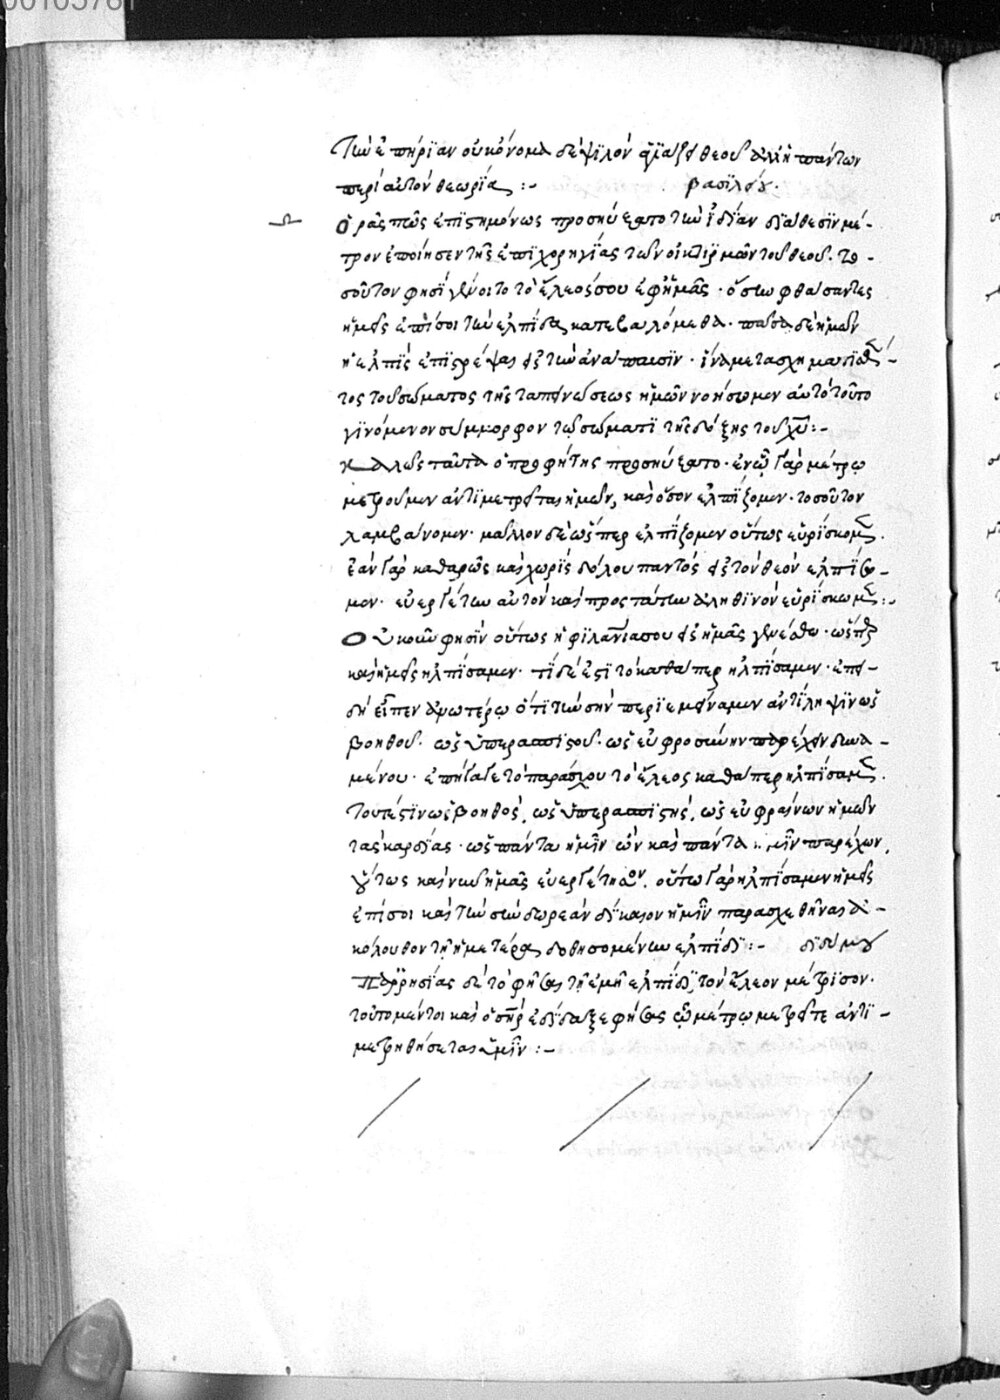 00105781
τὴν ἐπήρειαν οὐκ ὄνομα δὲ ψιλὸν θεοῦ ἀλλ' ἡ πάντων
περὶ αὐτὸν θεωρία :- βασιλείου.
Ὁρᾶς πῶς ἐπιστημόνως προσηύξατο τὴν ἰδίαν διάθεσιν μέ-
τρον ἐποίησεν τῆς ἐπιχορηγίας τῶν οἰκτιρμῶν τοῦ θεοῦ. το-
σοῦτον φησὶ γένοιτο τὸ ἔλεός σου ἐφ' ἡμᾶς. ὅσην φθάσαντες
ἡμεῖς ἐπὶ σοι τὴν ἐλπίδα κατεβαλόμεθα. πᾶσα δὲ ἡμῶν
ἡ ἐλπὶς ἐπιστρέψαι εἰς τὴν ἀνάπαυσιν. ἵνα μετασχηματισθέν-
τος τοῦ σώματος τῆς ταπεινώσεως ἡμῶν νοήσωμεν αὐτὸ τοῦτο
γινόμενον σύμμορφον τῷ σώματι τῆς δόξης τοῦ χυ :-
Καλῶς ταῦτα ὁ προφήτης προσηύξατο. ἐν ᾧ γὰρ μέτρῳ
μετροῦμεν ἀντιμετρεῖται ἡμῖν, καὶ ὅσον ἐλπίζομεν. τοσοῦτον
λαμβάνομεν. μᾶλλον δὲ ὥσπερ ἐλπίζομεν οὕτως εὑρίσκομεν.
ἐὰν γὰρ καθαρῶς καὶ χωρὶς δόλου παντὸς εἰς τὸν θεὸν ἐλπίσω-
μεν. εὐεργέτην αὐτὸν καὶ προστάτην ἀληθινὸν εὑρίσκωμεν :-
Οὐκοῦν φησὶν οὕτως ἡ φιλανθρωπία σου εἰς ἡμᾶς γενέσθω. ὥσπερ
καὶ ἡμεῖς ἠλπίσαμεν. τί δέ ἐστι τὸ καθάπερ ἠλπίσαμεν. ἐπει-
δὴ εἶπεν ἀνωτέρω ὅτι τὴν σὴν περιεμείναμεν ἀντίληψιν ὡς
βοηθοῦ. ὡς ὑπερασπιστοῦ. ὡς εὐφροσύνην παρέχειν δυνα-
μένου. ἐπήγαγε τὸ παράσχου τὸ ἔλεος καθάπερ ἠλπίσαμεν.
τουτέστιν ὡς βοηθός, ὡς ὑπερασπιστής, ὡς εὐφραίνων ἡμῶν
τὰς καρδίας. ὡς πάντα ἡμῖν ὢν καὶ πάντα ἡμῖν παρέχων,
οὕτως καὶ νῦν ἡμᾶς εὐεργέτησον. οὕτω γὰρ ἠλπίσαμεν ἡμεῖς
ἐπί σοι καὶ τὴν σὴν δωρεὰν δίκαιον ἡμῖν παρασχεθῆναι ἀ-
κόλουθον τῇ ἡμετέρᾳ δοθησομένην ἐλπίδι :- διδύμου
Παρρησίας δὲ τὸ φῆσαι τῇ ἐμῇ ἐλπίδι, τὸν ἔλεον μέτρισον.
τοῦτο μέντοι καὶ ὁ σηρ ἐδίδαξε φήσας ᾧ μέτρῳ μετρεῖτε ἀντι-
μετρηθήσεται ὑμῖν :-